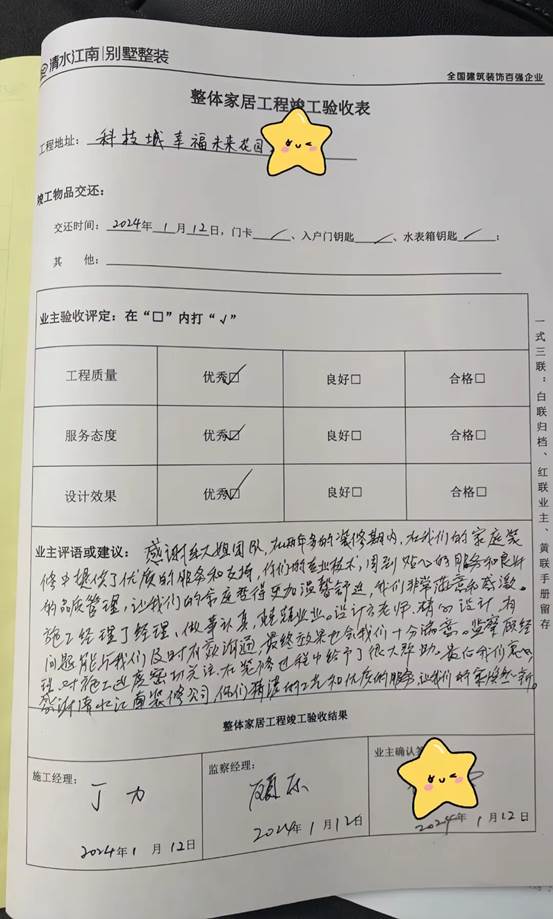 清水江南|别墅整装
全国建筑装饰百强企业
整体家居工程竣工验收表
工程地址：科技城幸福未来花园
竣工物品交还：
交还时间：2024年1月12日，门卡／、入户门钥匙／、水表箱钥匙／；
其 他：
业主验收评定：在“□”内打“√”
工程质量 优秀☑ 良好□ 合格□
服务态度 优秀☑ 良好□ 合格□
设计效果 优秀☑ 良好□ 合格□
一式三联：白联归档、红联业主、黄联手册留存
业主评语或建议：感谢大姐团队，在两年多的装修期内，在我们的家庭装
修中提供了优质的服务和支持，你们的专业技术，周到贴心的服务和良好
的品质管理，让我们的家庭变得更加温馨舒适，我们非常满意和感激。
施工经理丁经理，做事认真，兢兢业业。设计方老师，精心设计，有
问题能与我们及时有效沟通，最终效果也令我们十分满意。监察顾经
理，对施工进度密切关注，在装修过程中给予了很大帮助。最后我们衷心
感谢清水江南装修公司，你们精湛的工艺和优质的服务，让我们的家焕然一新。
整体家居工程竣工验收结果
施工经理： 监察经理： 业主确认
丁力 顾
2024年1月12日 2024年1月12日 2024年1月12日